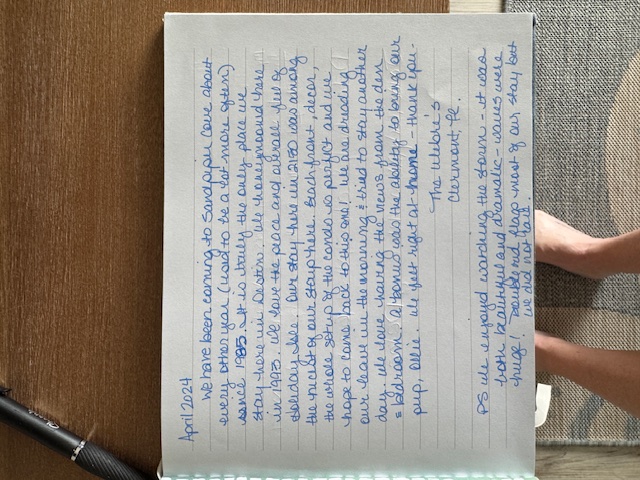 April 2024
We have been coming to Sandpiper Cove about
every other year (used to be a lot more often)
since 1985. It is truly the only place we
stay here in Destin. We honeymooned here
in 1993. We love the peace and overall feel of
Holiday Isle. Our stay here in 2150 was among
the nicest of our stays here. Beachfront, decor,
the whole setup of the condo is perfect and we
hope to come back to this one! We are dreading
our leave in the morning & tried to stay another
day. We love having the views from the den
& bedroom. A bonus was the ability to bring our
pup, Allie. We felt right at home - thank you.
The
Clermont, FL.
PS We enjoyed watching the storm - it was
both beautiful and dramatic - waves were
huge! Double red flags most of our stay but
we did not care.